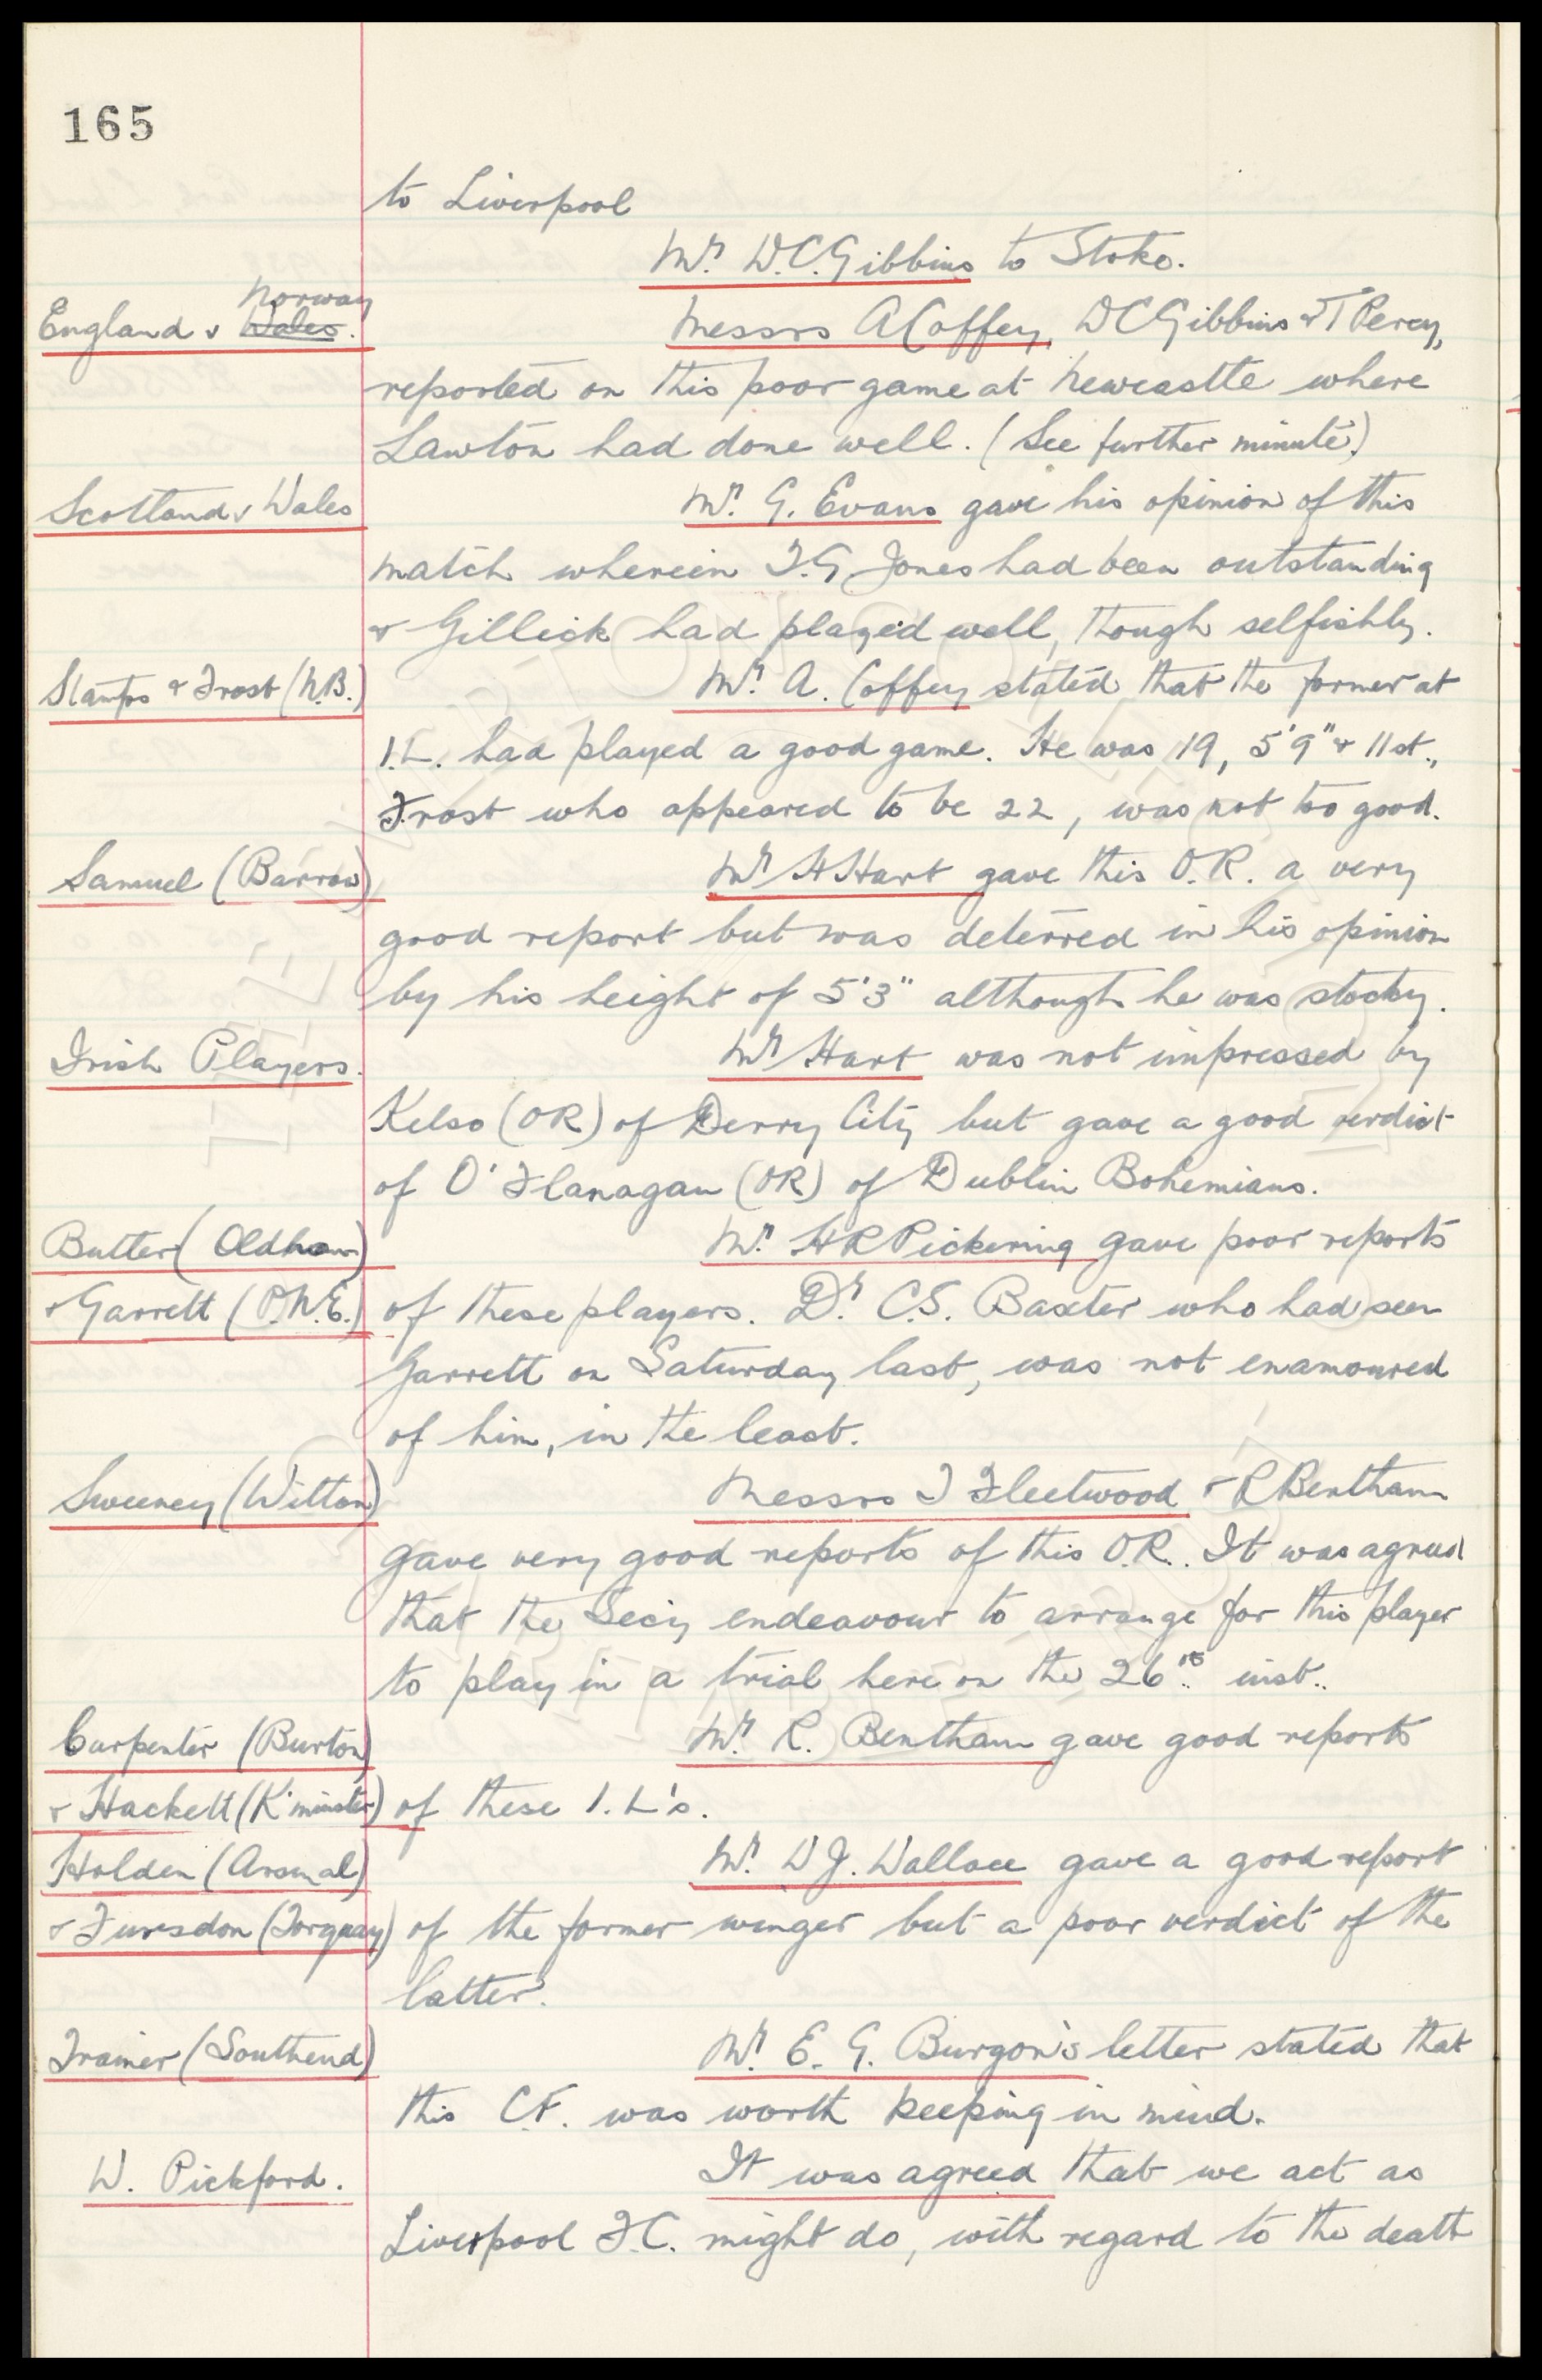 165
to Liverpool
Mr. W.C. Gibbins to Stoke.
Norway
England v Wales. Messrs A Coffey, WC Gibbins & T Percy,
reported on this poor game at Newcastle where
Lawton had done well. (See further minute.)
Scotland v Wales Mr. G. Evans gave his opinion of this
match wherein T.G Jones had been outstanding
& Gillick had played well, though selfishly.
Stamps & Frost (N.B.) Mr. A. Coffey stated that the former at
I.L. had played a good game. He was 19, 5'9" & 11st.,
Frost who appeared to be 22, was not too good.
Samuel (Barrow) Mr H Hart gave this O.R. a very
good report but was deterred in his opinion
by his height of 5'3" although he was stocky.
Irish Players. Mr Hart was not impressed by
Kelso (OR) of Derry City but gave a good verdict
of O'Flanagan (OR) of Dublin Bohemians.
Butter (Oldham) Mr. HR Pickering gave poor reports
& Garrett (P.N.E.) of these players. Dr. C.S. Baxter who had seen
Garrett on Saturday last, was not enamoured
of him, in the least.
Sweeney (Witton) Messrs T Fleetwood & R Bentham
gave very good reports of this O.R.. It was agreed
that the Secy endeavour to arrange for this player
to play in a trial here on the 26th. inst..
Carpenter (Burton) Mr. R. Bentham gave good reports
& Hackett (K'minster) of these I.L's.
Holden (Arsenal) Mr. W J. Wallace gave a good report
& Fursdon (Torquay) of the former winger but a poor verdict of the
latter.
Trainer (Southend) Mr. E. G. Burgon's letter stated that
this CF. was worth keeping in mind.
W. Pickford. It was agreed that we act as
Liverpool F.C. might do, with regard to the death